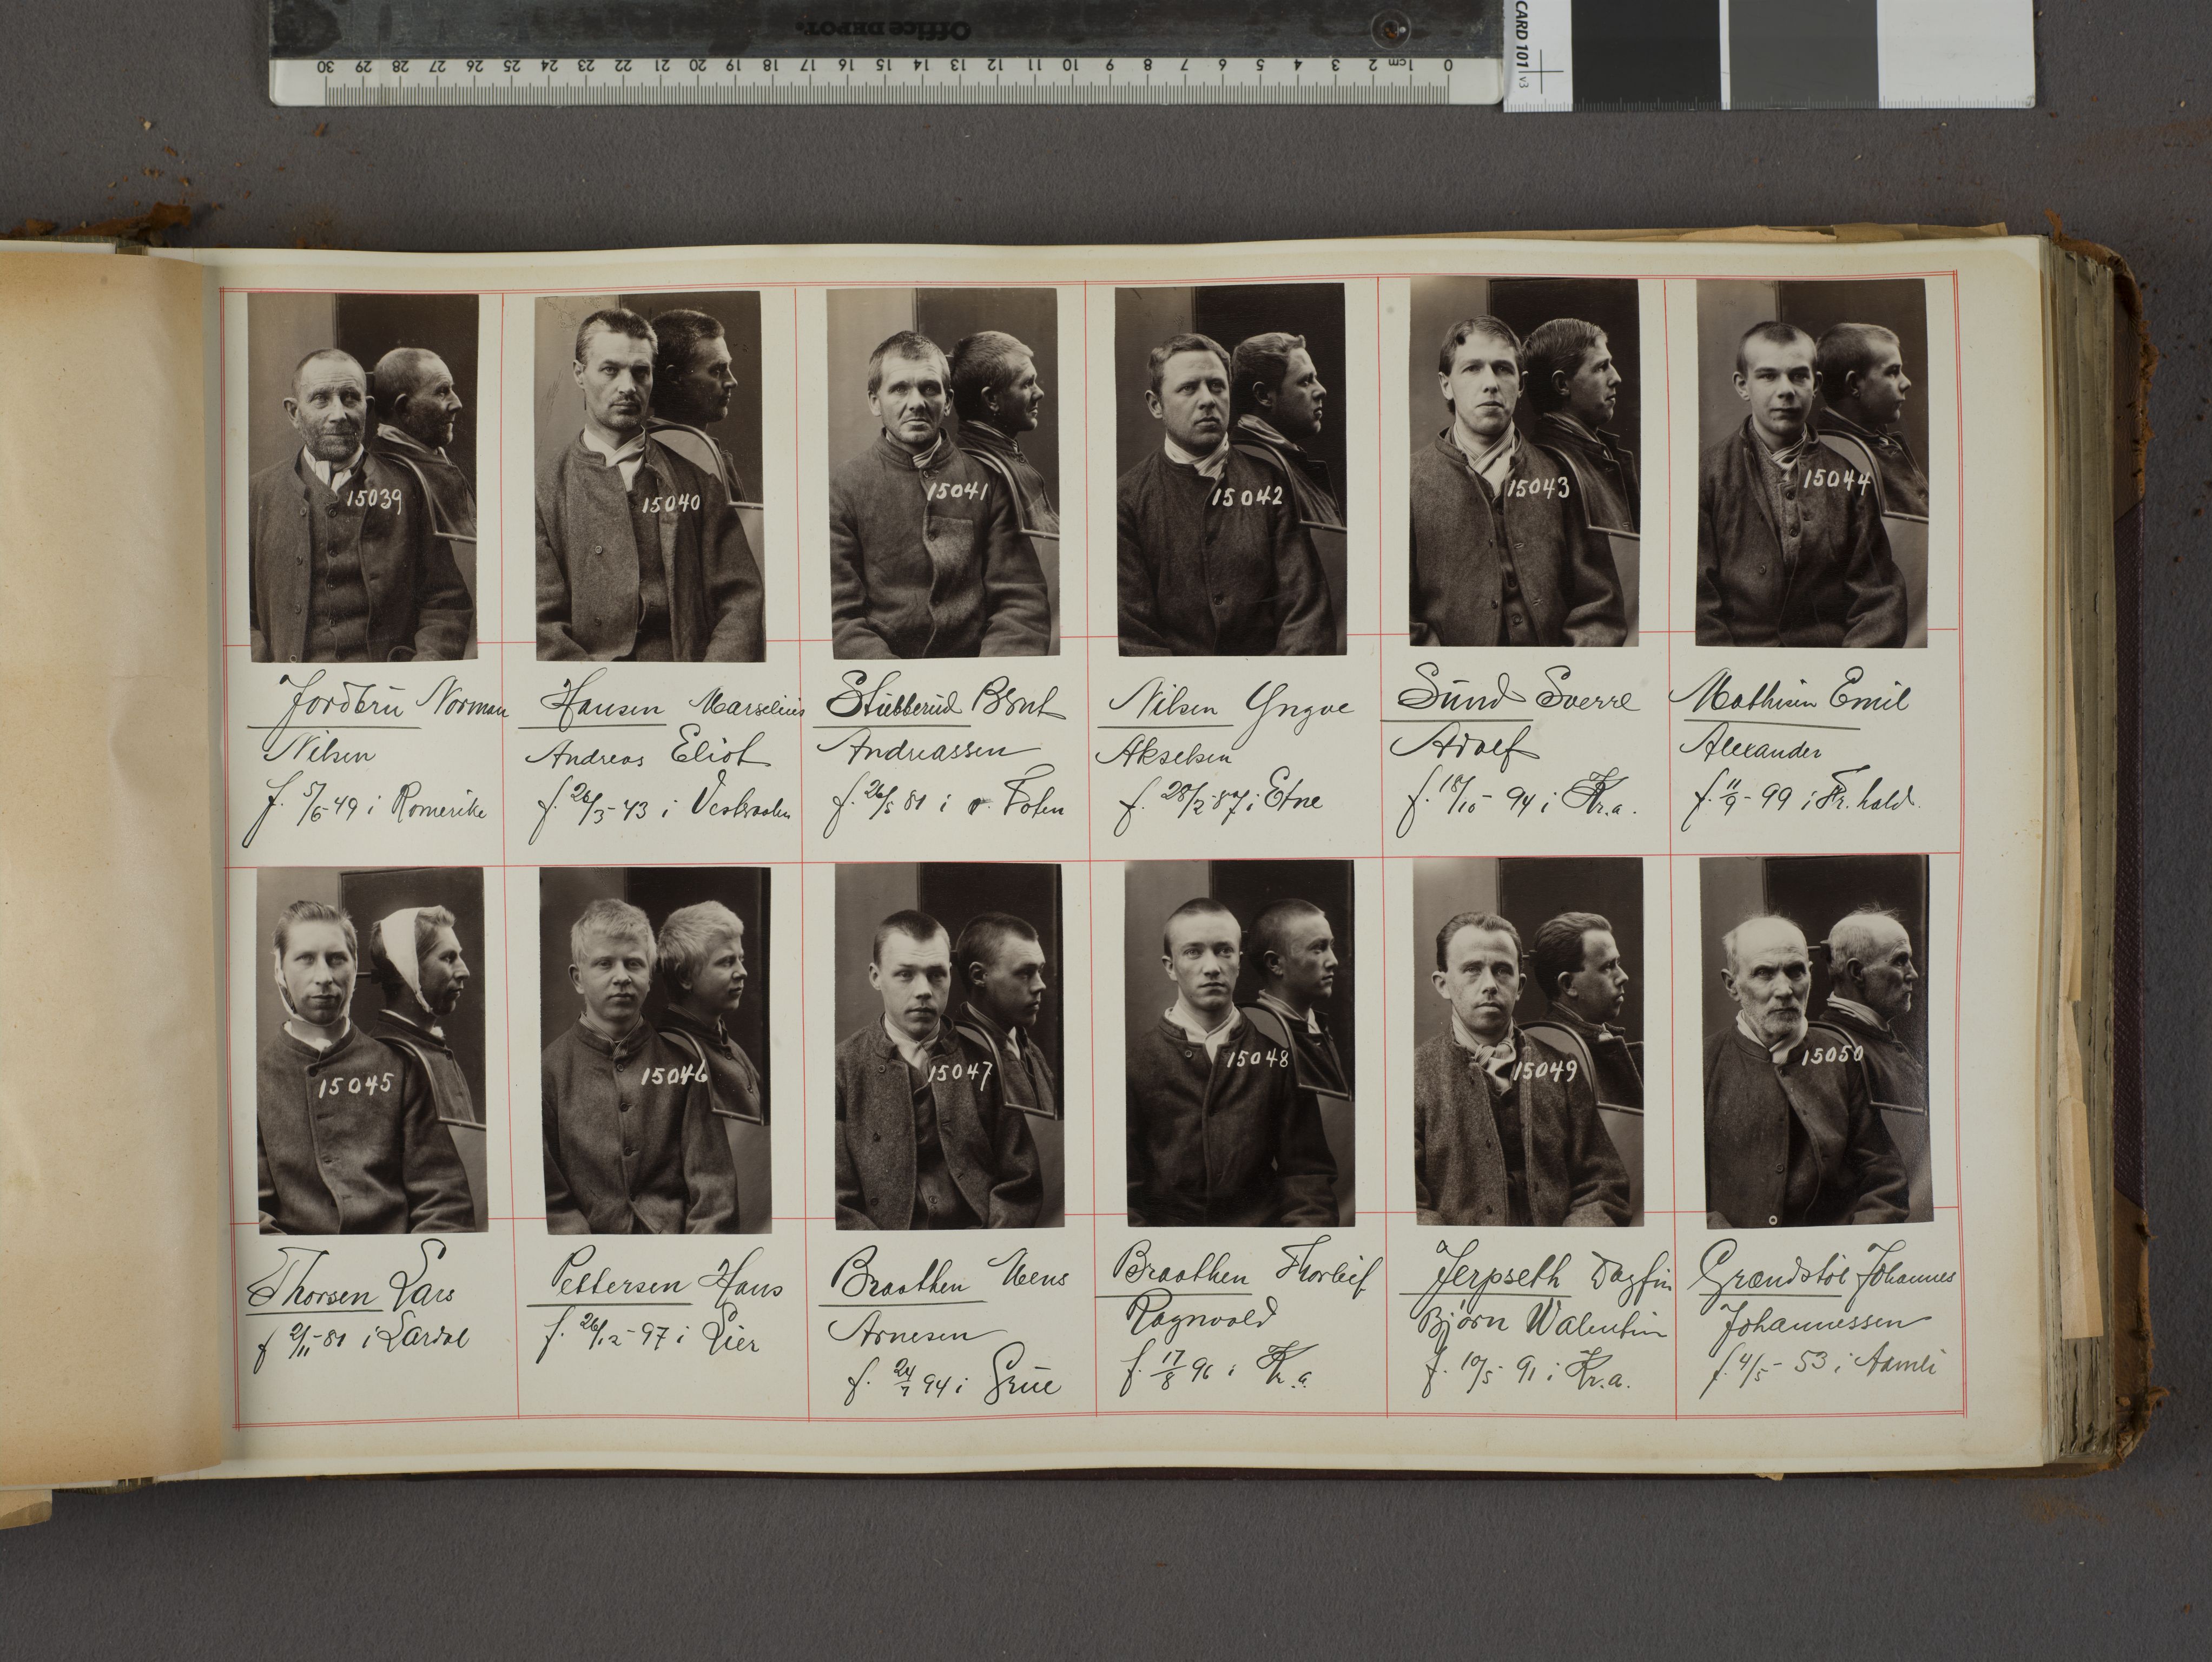 Office DEPOT.
30 29 28 27 26 25 24 23 22 21 20 19 18 17 16 15 14 13 12 11 10 9 8 7 6 5 4 3 2 1cm 0
CARD 101 v3
15039
15040
15041
15042
15043
15044
Jordbru Norman
Nilsen
f. 5/6-49 i Romerike
Hansen Marselius
Andreas Eliot
f. 26/3-43 i
Stubberud Bernt
Andreassen
f. 26/5 81 i v. Toten
Nilsen Yngve
Akselsen
f. 28/2-87 i Etne
Sund Sverre
Adolf
f. 18/10-94 i Kr.a.
Mathisen Emil
Alexander
f. 11/9-99 i Fr.hald.
15045
15046
15047
15048
15049
15050
Thorsen Lars
f 2/11-81 i Lardal
Pettersen Hans
f. 26/12-97 i Lier
Braathen Mens
Arnesen
f. 24/7 94 i Grue
Braathen Thorleif
Ragnvald
f. 17/8 96 i Kr.a.
Jerpseth Dagfin
Bjørn Walentin
f. 10/5-91 i Kr.a.
Grændstøl Johannes
Johannessen
f. 4/5-53 i Aamli